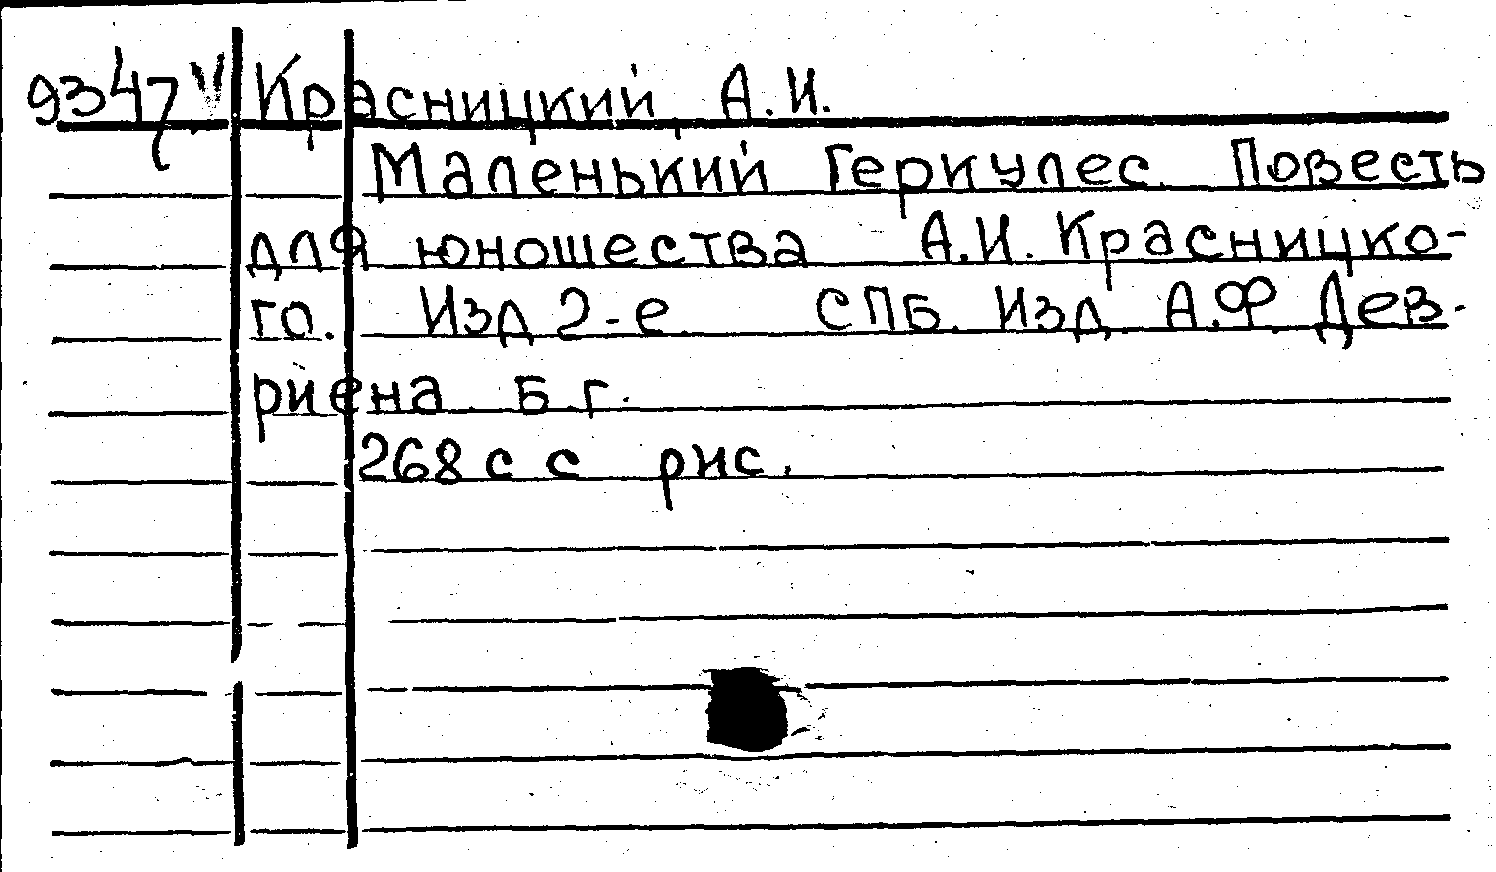 9347 V Красницкий, А.И.
Маленький Геркулес. Повесть
для юношества А.И. Красницко-
го. Изд 2-е. СПБ. Изд. А.Ф. Дев-
риена Б.г.
268 с с рис.